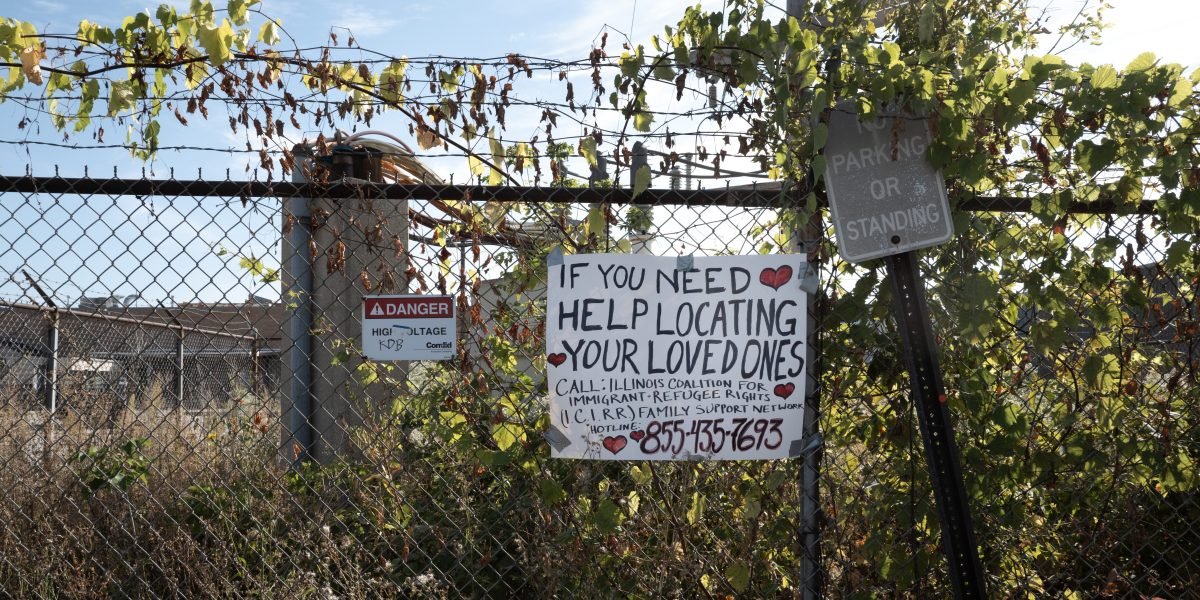 DANGER
HIGH VOLTAGE
KDB
ComEd
IF YOU NEED
HELP LOCATING
YOUR LOVED ONES
CALL: ILLINOIS COALITION FOR
IMMIGRANT-REFUGEE RIGHTS
(I.C.I.RR) FAMILY SUPPORT NETWORK
HOTLINE: 855-435-7693
NO
PARKING
OR
STANDING